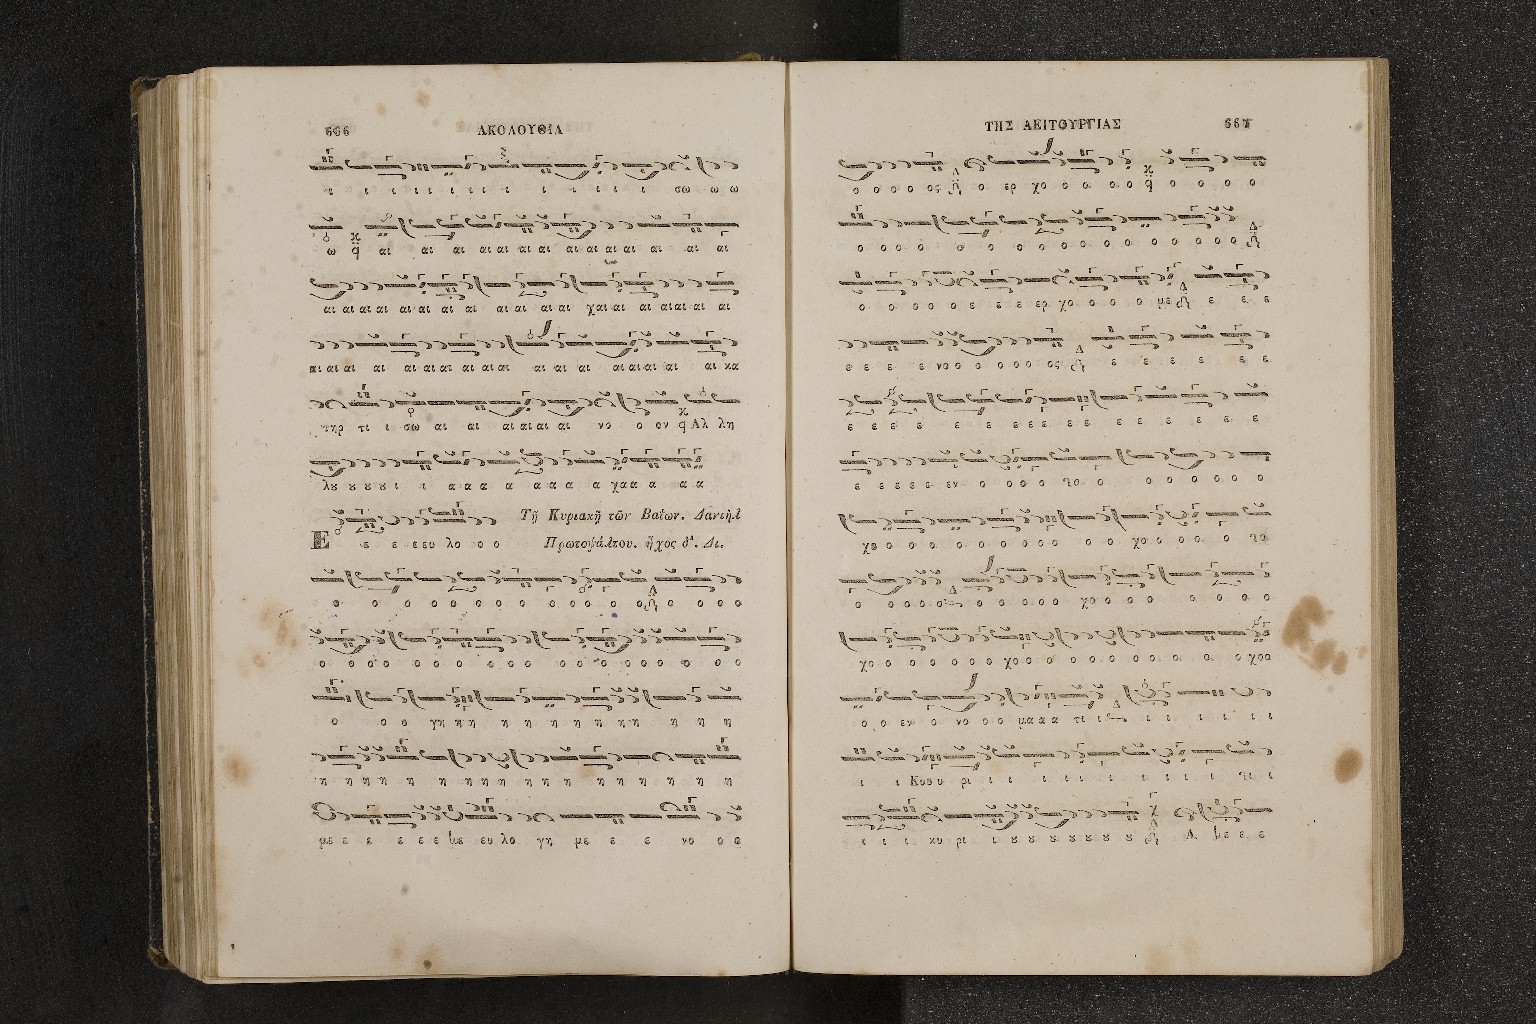 666 ΑΚΟΛΟΥΘΙΑ
ι ι ι ι ι ι ι ι ι ι ι ι ι σω ω ω
ω q αι αι αι αι αι αι αι αι αι αι αι αι αι αι
αι αι αι αι αι αι αι αι αι αι αι αι αι χαι αι αι αι αι αι αι
αι αι αι αι αι αι αι αι αι αι αι αι αι αι αι αι αι αι κα
τηρ τι ι σω αι αι αι αι αι αι νο ο ον q Αλ λη
λȣ ȣ ȣ ȣ ι ι α α α α α α α α χα α α α α
Τῇ Κυριακῇ τῶν Βαΐων. Δανιὴλ
Ε ε ε ε ευ λο ο ο Πρωτοψάλτου. ἦχος δ'. Δι.
ο ο ο ο ο ο ο ο ο ο ο ο ο ο ο ο ο ο
ο ο ο ο ο ο ο ο ο ο ο ο ο ο ο ο ο ο ο
ο ο ο γη η η η η η η η η η η η η
η η η η η η η η η η η η η η η η
με ε ε ε ε ε με ευ λο γη με ε ε νο ο ο
ΤΗΣ ΛΕΙΤΟΥΡΓΙΑΣ 667
ο ο ο ο ος ο ερ χο ο ο ο ο q ο ο ο ο
ο ο ο ο ο ο ο ο ο ο ο ο ο ο ο ο ο
ο ο ο ο ο ε ε ε ερ χο ο ο ο με ε ε ε
ε ε ε ε νο ο ο ο ο ο ος ε ε ε ε ε ε
ε ε ε ε ε ε ε ε ε ε ε ε ε ε ε ε
ε ε ε ε ε εν ο ο ο ο το ο ο ο ο ο ο
χο ο ο ο ο ο ο ο ο ο ο ο χο ο ο ο ο το
ο ο ο ο ο ο ο ο ο ο ο χο ο ο ο ο ο ο ο
χο ο ο ο ο ο ο χο ο ο ο ο ο ο ο ο ο ο ο χο ο
ο ο εν ο νο ο ο μα α α τι ι ι ι ι ι ι ι
ι ι Κυ υ υ ρι ι ι ι ι ι ι ι ι ι τι ι
ι ι ι κυ ρι ι ȣ ȣ ȣ ȣ ȣ ȣ ȣ ȣ Α με ε ε